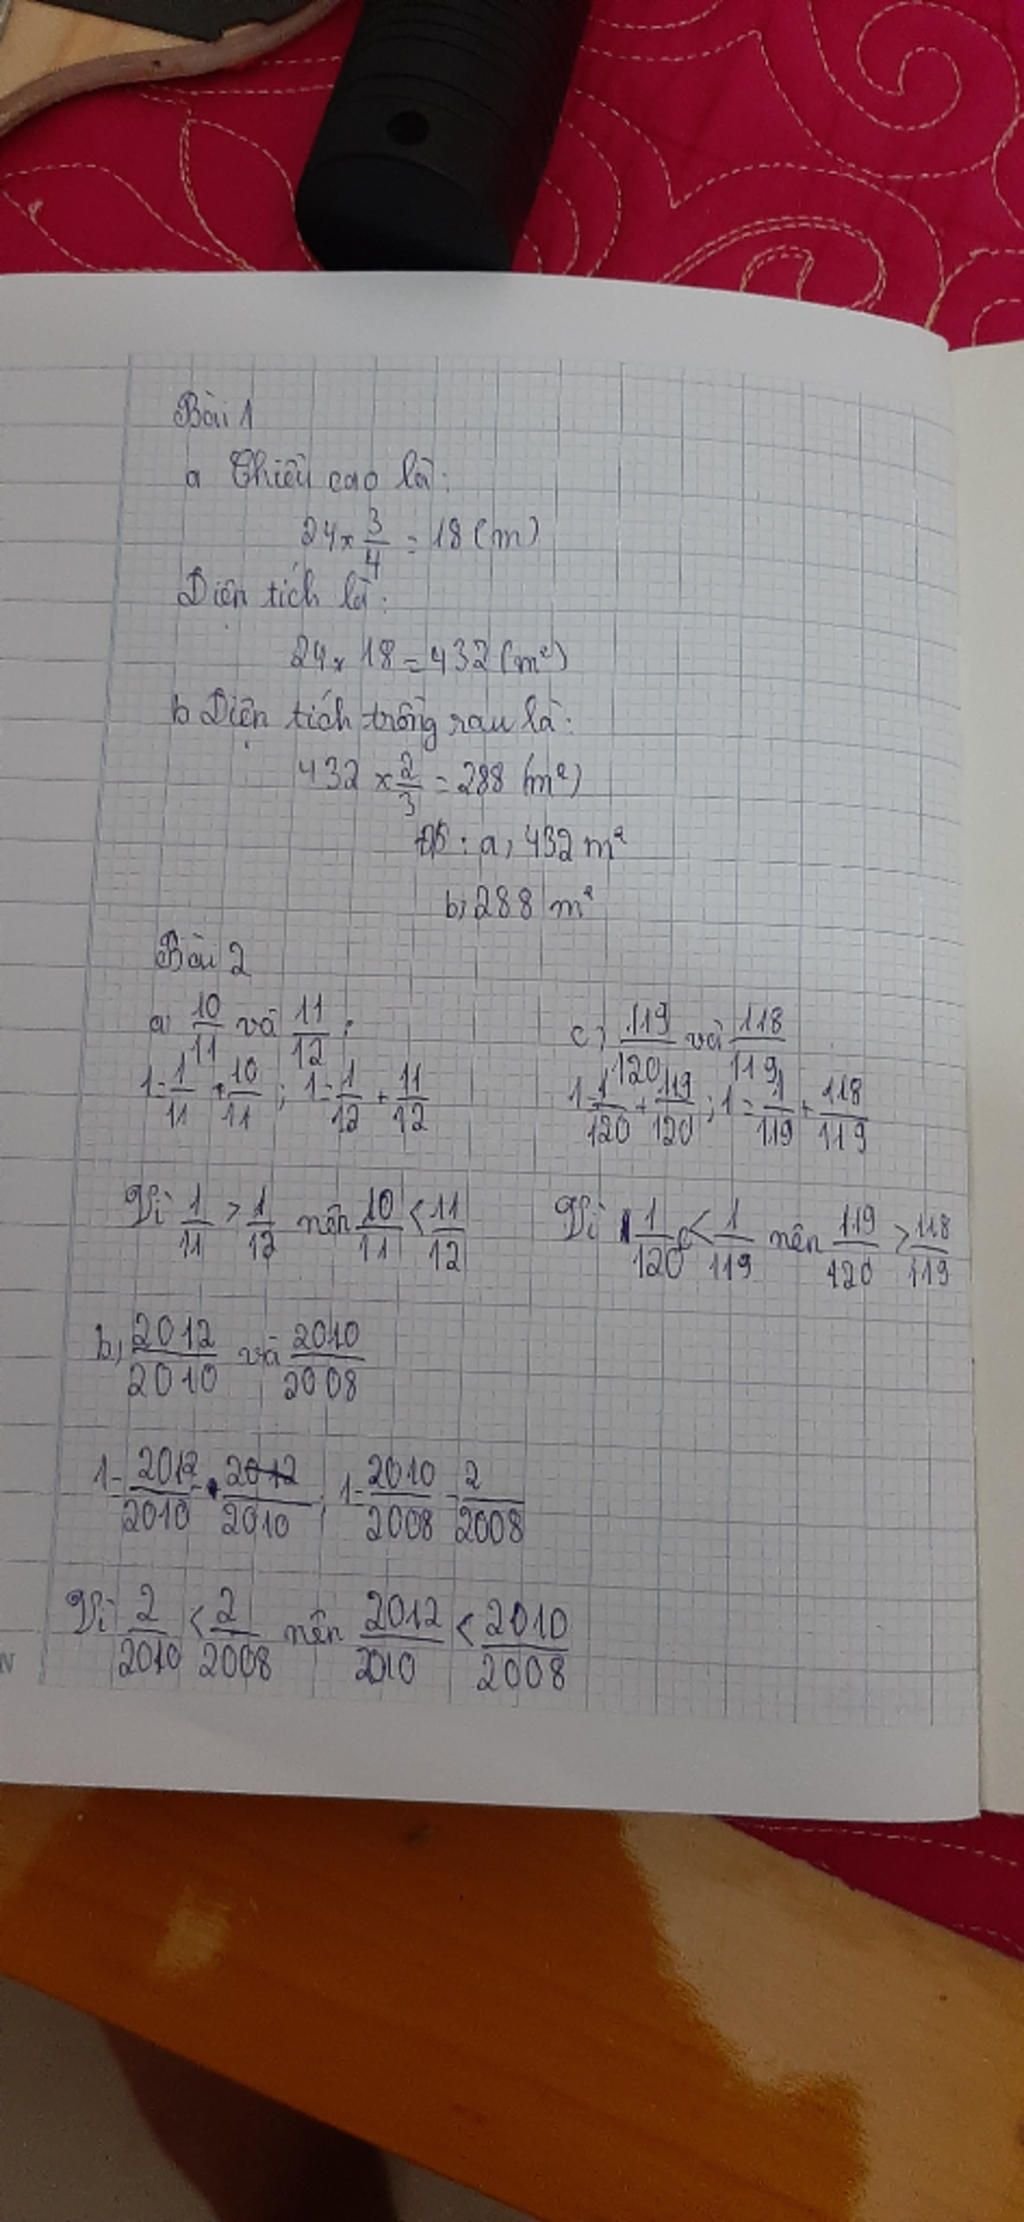 Bài 1
a Chiều cao là:
24 × 3/4 = 18 (m)
Diện tích là:
24 × 18 = 432 (m²)
b Diện tích trồng rau là:
432 × 2/3 = 288 (m²)
ĐS: a, 432 m²
b, 288 m²
Bài 2
a, 10/11 và 11/12:
1 = 1/11 + 10/11 ; 1 = 1/12 + 11/12
Vì 1/11 > 1/12 nên 10/11 < 11/12
c, 119/120 và 118/119
1 = 1/120 + 119/120 ; 1 = 1/119 + 118/119
Vì 1/120 < 1/119 nên 119/120 > 118/119
b, 2012/2010 và 2010/2008
1 = 2012/2010 - 2012/2010 ; 1 = 2010/2008 - 2/2008
Vì 2/2010 < 2/2008 nên 2012/2010 < 2010/2008